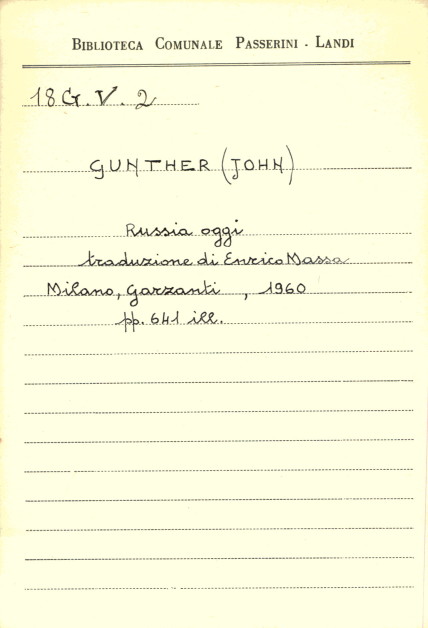 BIBLIOTECA COMUNALE PASSERINI - LANDI
18 G. V. 2
GUNTHER (JOHN)
Russia oggi
traduzione di Enrico Massa
Milano, Garzanti , 1960
pp. 641 ill.